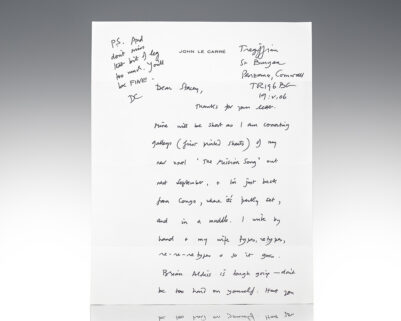 P.S. And
don't miss
last bit of leg
too much. You'll
be FINE!
DC
JOHN LE CARRÉ
Tregiffian
St Buryan
Penzance, Cornwall
TR19 6BG
19.v.06
Dear Stacey,
Thanks for your letter.
Mine will be short as I am correcting
galleys (first printed sheets) of my
new novel 'The Mission Song' out
next September, & I'm just back
from Congo, where it's partly set,
and in a muddle. I write by
hand & my wife types, retypes,
re-re-retypes & so it goes.
Brian Aldiss is tough going — don't
be too hard on yourself. Have you